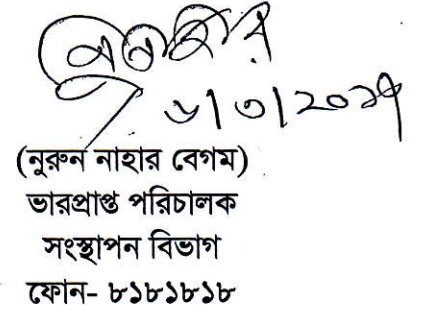 ৬/৩/২০১৭
(নুরুন নাহার বেগম)
ভারপ্রাপ্ত পরিচালক
সংস্থাপন বিভাগ
ফোন- ৮১৮১৮১৮